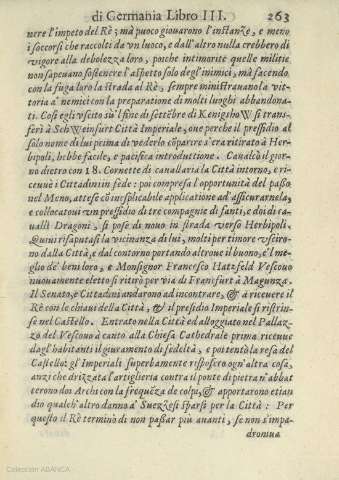 di Germania Libro III. 263
nere l'impeto del Rè; mà puoco giouarono l'instanze, e meno
i soccorsi che raccolti da vn luoco, e dall'altro nulla crebbero di
vigore alla debolezza loro, poiche intimorite quelle militie
non sapeuano sostenere l'aspetto solo degl'inimici, mà facendo
con la fuga loro la strada al Rè, sempre ministrauano la vit-
toria a' nemici con la preparatione di molti luoghi abbandona-
ti. Così egli vscito sù'l fine di settēbre di KenigshoW si trans-
ferì à SchWeinfurt Città Imperiale, oue perche il pressidio al
solo nome di lui prima di vederlo cōparire s'era ritirato à Her-
bipoli, hebbe facile, e pacifica introduttione. Caualcò il gior-
no dietro con 18. Cornette di cauallaria la Città intorno, e ri-
ceuuè i Cittadini in sède: poi compresa l'opportunità del passo
nel Meno, attese cō inesplicabile applicatione ad'assicurarnela,
e collocatoui vn pressidio di tre compagnie di fanti, e doi di ca-
ualli Dragoni, si pose di nouo in strada verso Herbipoli.
Quiui risaputasi la vicinanza di lui, molti per timore vsciro-
no dalla Città, e dal contorno portando altroue il buono, e'l me-
glio de' beni loro, e Monsignor Francesco Hatzfeld Vescouo
nouamente eletto si ritirò per via di Franisfurt à Magunza.
Il Senato, e Cittadini andarono ad incontrare, & à riceuere il
Rè con le chiaui della Città, & il presidio Imperiale si ristrin-
se nel Castello. Entrato nella Città ed alloggiato nel Pallaz-
zo del Vescouo à canto alla Chiesa Cathedrale prima riceuue
dagl'habitanti il giuramento di fedeltà, e poi tentò la resa del
Castello: gl'Imperiali superbamente risposero ogn'altra cosa,
anzi che drizzata l'artiglieria contra il ponte di pietra n'abbat
terono doi Archi con la frequēza de colpi, & apportarono etian
dio qualch'altro danno à Suezzesi sparsi per la Città: Per
questo il Rè terminò di non passar più auanti, se non s'impa-
dronuia
Colección ABANCA